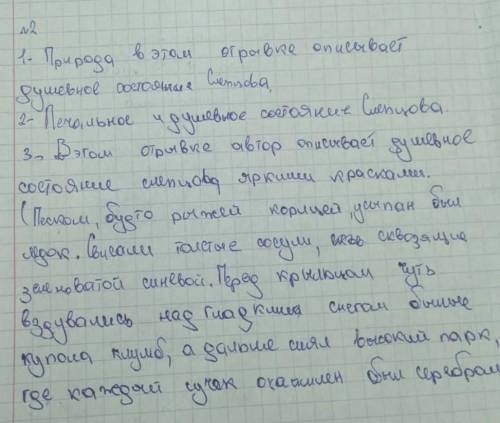 №2
1- Природа в этом отрывке описывает
душевное состояние Слепцова.
2- Печальное и душевное состояние Слепцова.
3- В этом отрывке автор описывает душевное
состояние слепцова яркими красками.
(Песком, будто рыжей корицей, усыпан был
ледок. Свисали толстые сосули, сквозящие
зеленоватой синевой. Перед крыльцом чуть
вздувались над гладким снегом белые
купола клумб, а дальше сиял высокий парк,
где каждый сучок окаймлен был серебром